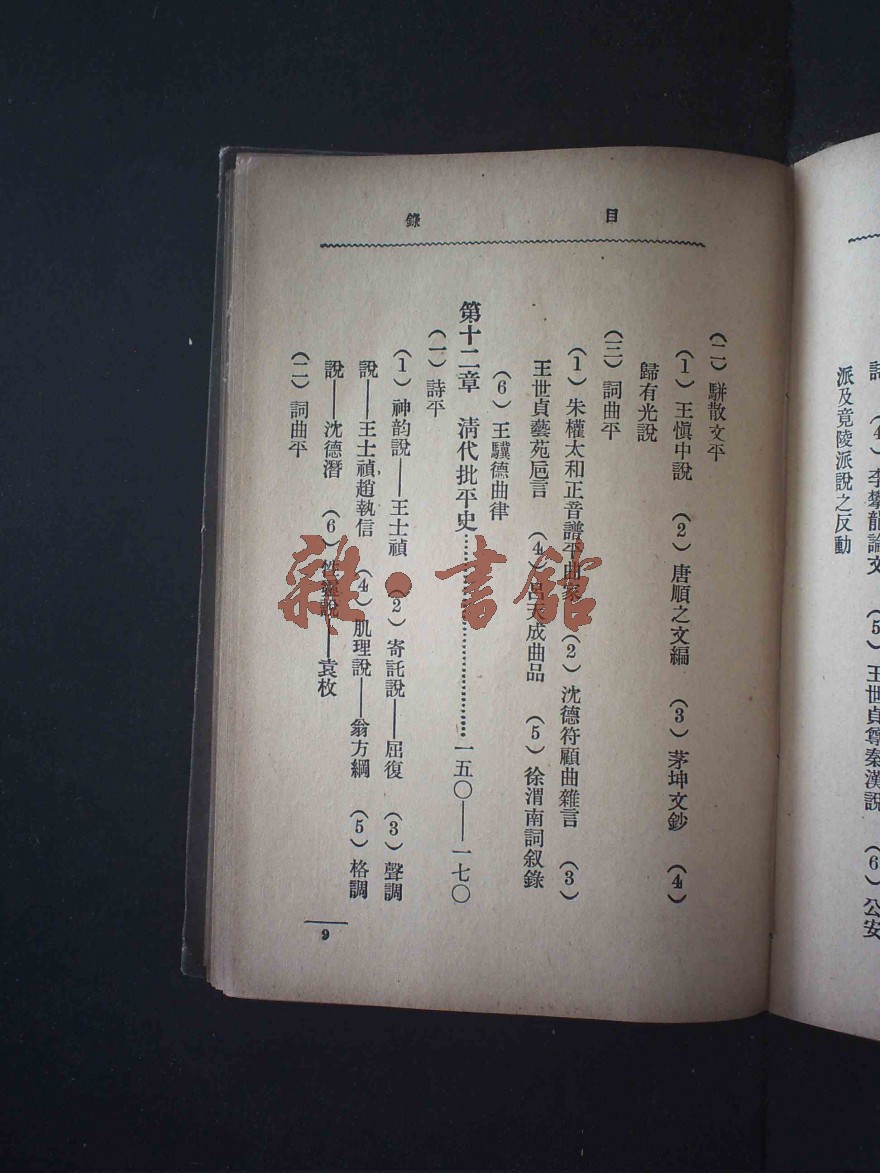 詩 (4) 李攀龍論文 (5) 王世貞尊秦漢說 (6) 公安
派及竟陵派說之反動
目錄
(二) 駢散文平
(1) 王慎中說 (2) 唐順之文編 (3) 茅坤文鈔 (4)
歸有光說
(三) 詞曲平
(1) 朱權太和正音譜平曲家 (2) 沈德符顧曲雜言 (3)
王世貞藝苑巵言 (4) 呂天成曲品 (5) 徐渭南詞叙錄
(6) 王驥德曲律
第十二章 清代批平史……一五〇——一七〇
(一) 詩平
(1) 神韵說——王士禎 (2) 寄託說——屈復 (3) 聲調
說——王士禎趙執信 (4) 肌理說——翁方綱 (5) 格調
說——沈德潛 (6) 性靈說——袁枚
(二) 詞曲平
9
雜·書館